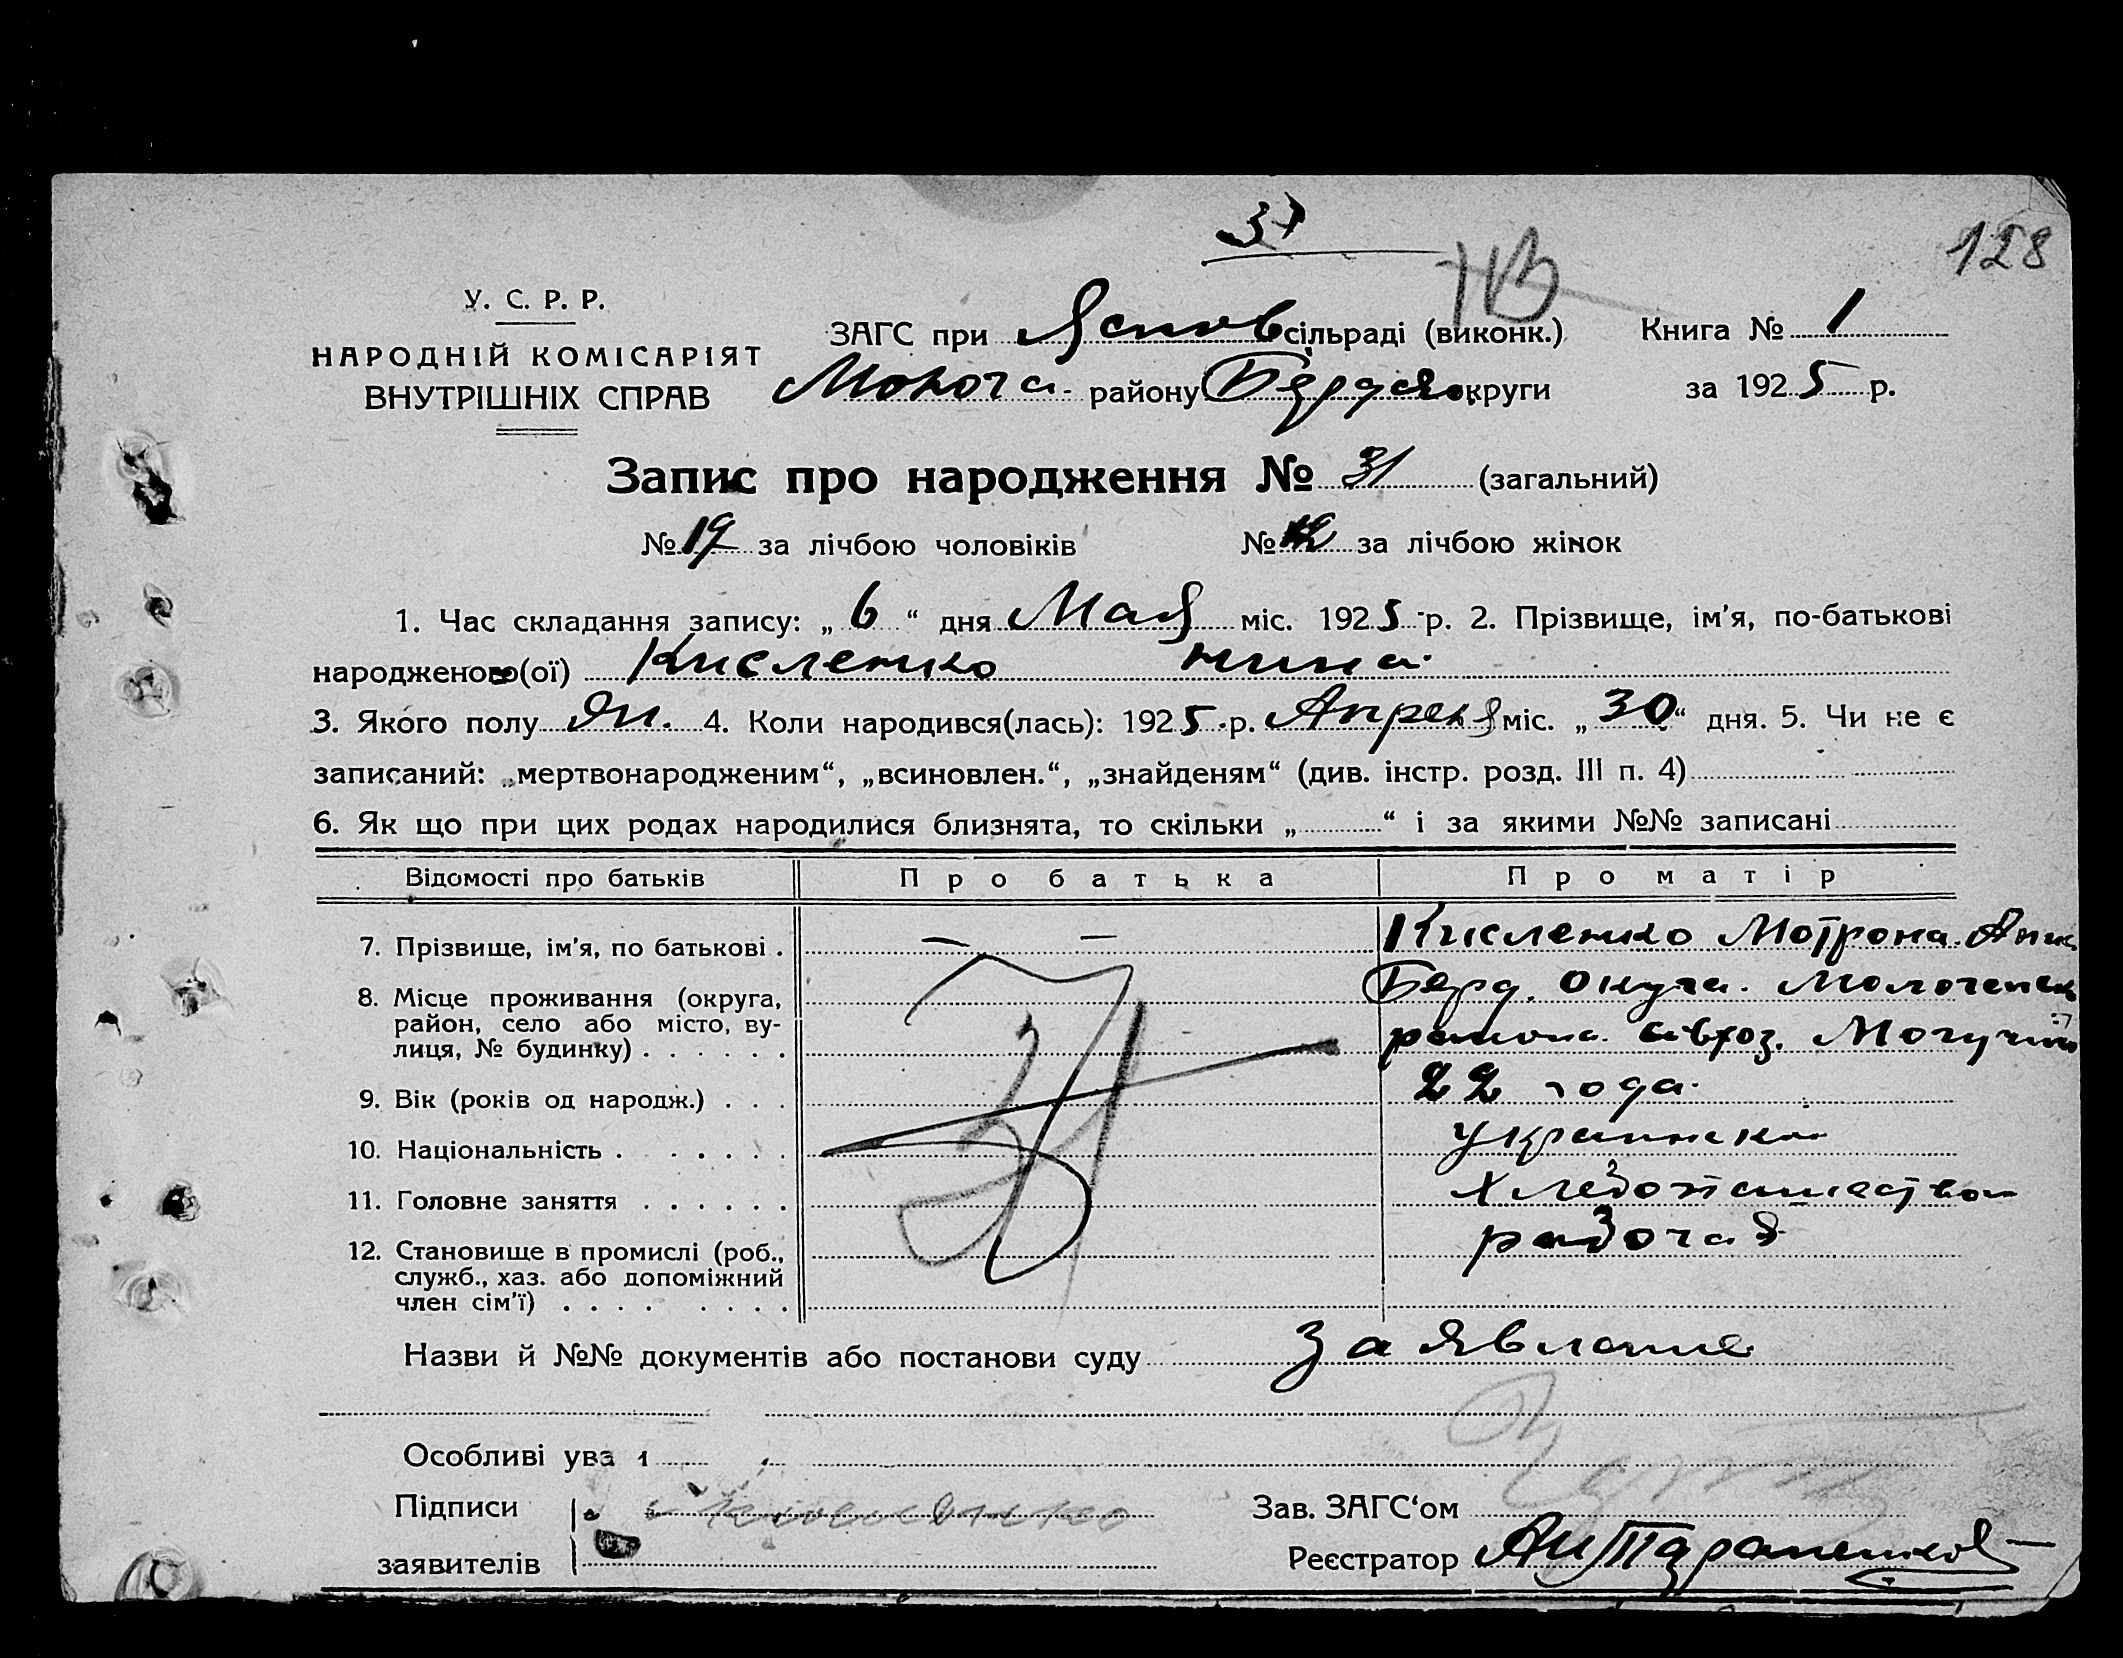 37
128
У. С. Р. Р.
НАРОДНІЙ КОМІСАРІЯТ
ВНУТРІШНІХ СПРАВ
ЗАГС при Яснов сільраді (виконк.) Книга № 1
Молоча району Бердян округи за 1925 р.
Запис про народження № 31 (загальний)
№ 19 за лічбою чоловіків № 12 за лічбою жінок
1. Час складання запису: „ 6 “ дня Мая міс. 1925 р. 2. Прізвище, ім'я, по-батькові
народженого(ої) Кисленко Нина
3. Якого полу жн. 4. Коли народився(лась): 1925 р. Апреля міс. „ 30 “ дня. 5. Чи не є
записаний: „мертвонародженим“, „всиновлен.“, „знайденям“ (див. інстр. розд. III п. 4)
6. Як що при цих родах народилися близнята, то скільки „ “ і за якими №№ записані
Відомості про батьків Про батька Про матір
7. Прізвище, ім'я, по батькові . — — Кисленко Мотрона
8. Місце проживання (округа, Берд. округа. Молочанск
район, село або місто, ву- района. Могучий
лиця, № будинку) . . . . . .
9. Вік (років од народж.) . . . 22 года
10. Національність . . . . . . украинка
11. Головне заняття . . . . . . хлебопашество
12. Становище в промислі (роб., рабочая
служб., хаз. або допоміжний
член сім'ї) . . . . . . . .
Назви й №№ документів або постанови суду Заявление
Особливі ува
Підписи Кисленко Зав. ЗАГС‘ом
заявителів Реєстратор